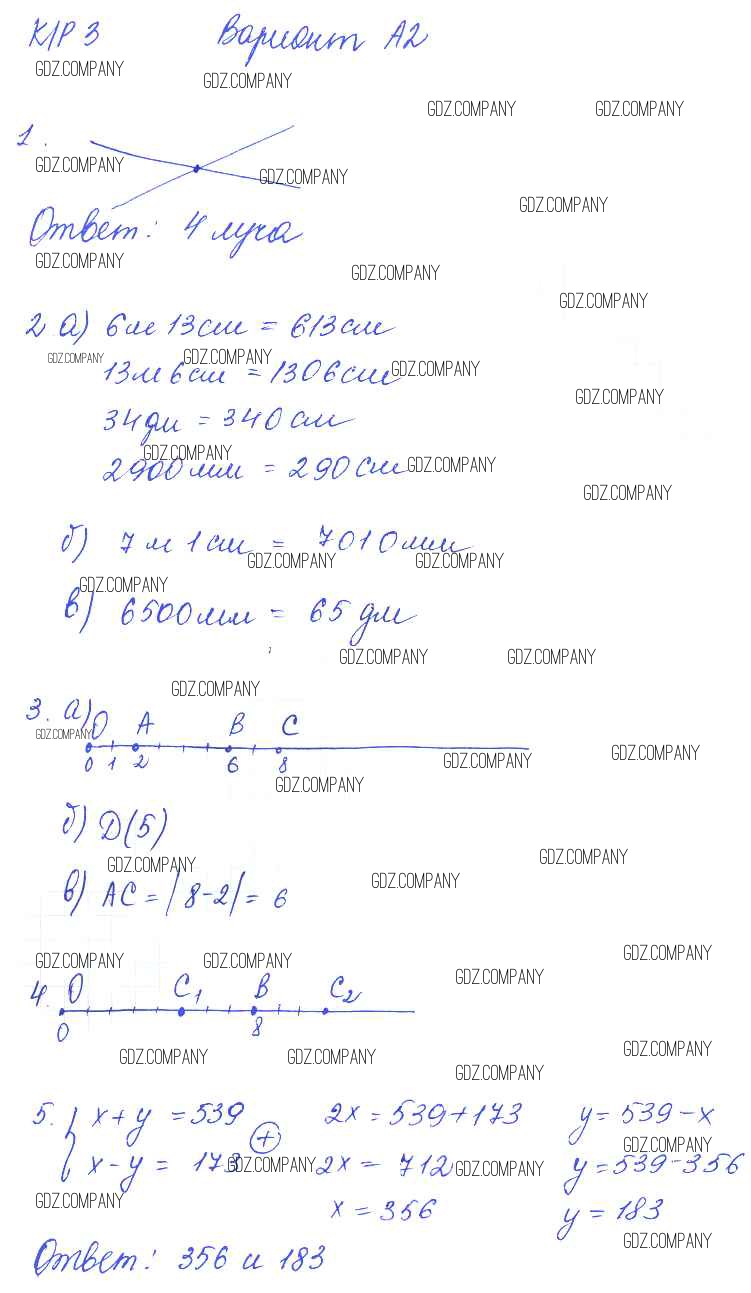 К/Р 3 Вариант А2
GDZ.COMPANY GDZ.COMPANY GDZ.COMPANY GDZ.COMPANY
1.
GDZ.COMPANY GDZ.COMPANY GDZ.COMPANY
Ответ: 4 луча
GDZ.COMPANY GDZ.COMPANY GDZ.COMPANY
2 а) 6м 13см = 613см
GDZ.COMPANY GDZ.COMPANY GDZ.COMPANY
13м 6см = 1306см
GDZ.COMPANY
34дм = 340см
GDZ.COMPANY GDZ.COMPANY
2900мм = 290см
GDZ.COMPANY
б) 7м 1см = 7010мм
GDZ.COMPANY GDZ.COMPANY GDZ.COMPANY
в) 6500мм = 65дм
GDZ.COMPANY GDZ.COMPANY
GDZ.COMPANY
3. а) O A B C
GDZ.COMPANY
0 1 2 6 8
GDZ.COMPANY GDZ.COMPANY GDZ.COMPANY
б) D(5)
GDZ.COMPANY GDZ.COMPANY GDZ.COMPANY
в) AC = |8-2| = 6
GDZ.COMPANY GDZ.COMPANY GDZ.COMPANY GDZ.COMPANY
4. O C1 B C2
0 8
GDZ.COMPANY GDZ.COMPANY GDZ.COMPANY GDZ.COMPANY
5. { x+y = 539 2x = 539+173 y = 539-x
(+) GDZ.COMPANY
x-y = 173 2x = 712 y = 539-356
GDZ.COMPANY GDZ.COMPANY
x = 356 y = 183
GDZ.COMPANY GDZ.COMPANY
Ответ: 356 и 183